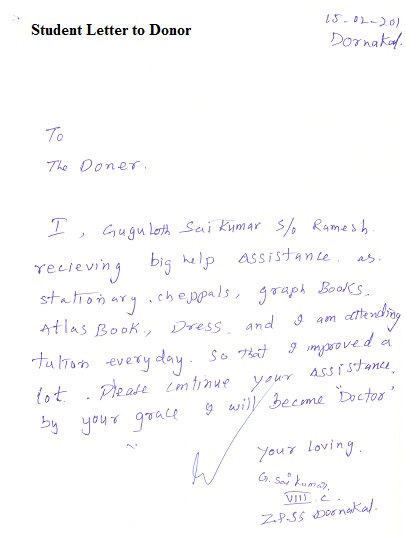 Student Letter to Donor
15-02-201
Dornakal.
To
The Doner.
I, Guguloth Sai Kumar S/o Ramesh.
recieving big help Assistance. as.
stationary. cheppals, graph Books,
Atlas Book, Dress. and I am attending
tution everyday. So that I improved a
lot. Please continue your Assistance.
by your grace I will become "Doctor"
Your Loving.
G. Sai kumar.
VIII. C.
Z.P.SS Dornakal.